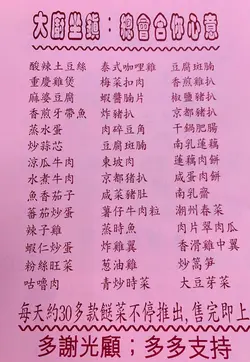 大廚坐鎮：總會合你心意
酸辣土豆絲 泰式咖哩雞 豆腐斑腩
重慶雞煲 梅菜扣肉 香煎雞扒
麻婆豆腐 蝦醬腩片 椒鹽豬扒
香煎牙帶魚 炸豬扒 京都豬扒
蒸水蛋 肉碎豆角 干鍋肥腸
炒蒜芯 豆腐斑腩 南乳蓮藕
涼瓜牛肉 東坡肉 蓮藕肉餅
水煮牛肉 京都豬扒 咸蛋肉餅
魚香茄子 咸菜豬肚 南乳齋
蕃茄炒蛋 薯仔牛肉粒 潮州春菜
辣子雞 蒸時魚 肉片翠肉瓜
蝦仁炒蛋 炸雞翼 香滑雞中翼
粉絲旺菜 葱油雞 炒萵笋
咕嚕肉 青炒時菜 大豆芽菜
每天約30多款餸菜不停推出,售完即上
多謝光顧；多多支持